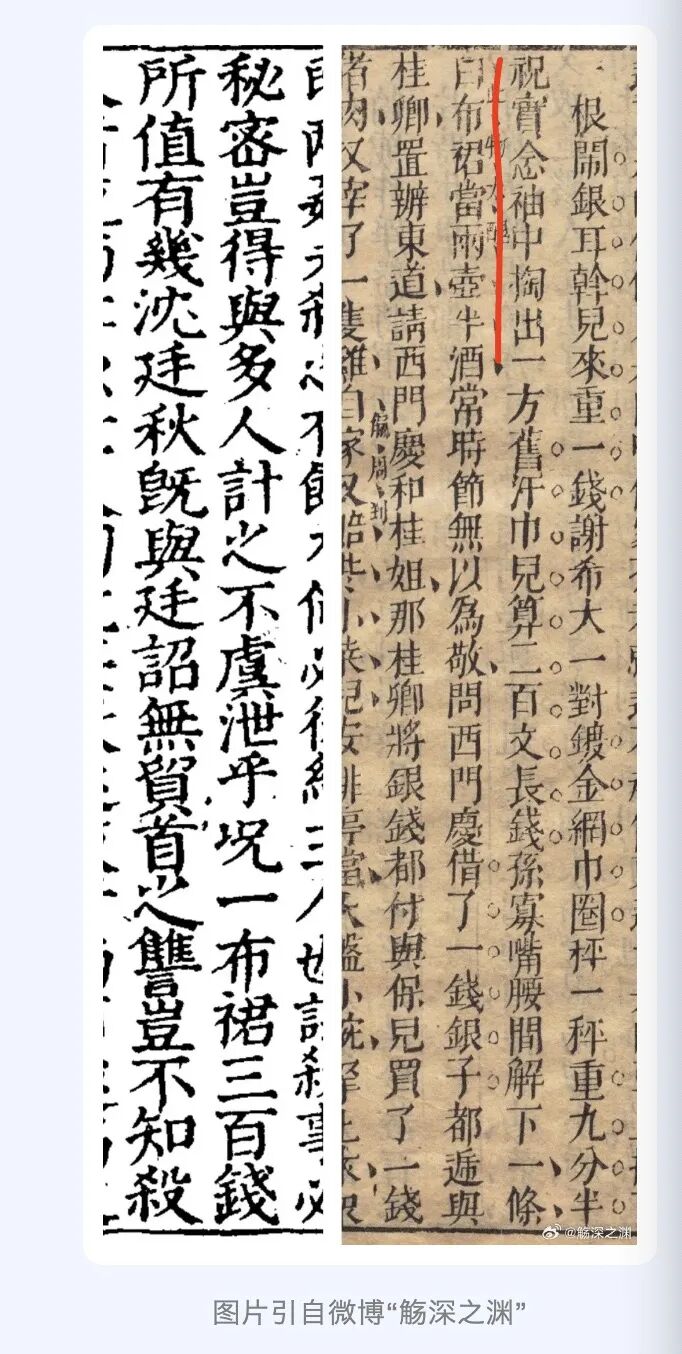 一根鬧銀耳斡兒來重一錢謝希大一對鍍金網巾圈秤一秤重九分半
祝實念袖中掏出一方舊汗巾兒算二百文長錢孫寡嘴腰間解下一條
白布裙當兩壺半酒常時節無以為敬問西門慶借了一錢銀子都遞與
桂卿置辦東道請西門慶和桂姐那桂卿將銀錢都付與保兒買了一錢
周到
猪肉又宰了一隻雞自家又賠些小菜兒安排停當大盤小碗拿上來眾
秘密豈得與多人計之不虞泄乎况一布裙三百錢
所值有幾沈廷秋既與廷詔無貿首之讐豈不知殺
@觞深之渊
图片引自微博“觞深之渊”